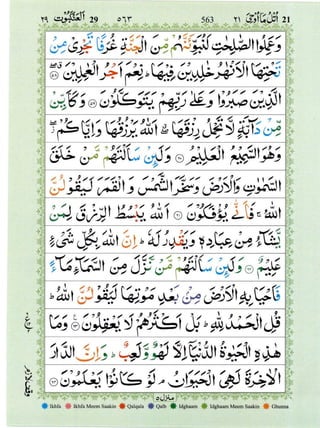 ٢٩ اَلْعَنْكَبُوْت 29 ٥٦٣ 563 ٢١ اُتْلُ مَآ اُوْحِىَ 21
وَعَمِلُوا الصّٰلِحٰتِ لَنُبَوِّئَنَّهُمْ مِّنَ الْجَنَّةِ غُرَفًا تَجْرِىْ مِنْ
تَحْتِهَا الْاَنْهٰرُ خٰلِدِيْنَ فِيْهَا ؕ نِعْمَ اَجْرُ الْعٰمِلِيْنَ ۝٥٨
الَّذِيْنَ صَبَرُوْا وَعَلٰى رَبِّهِمْ يَتَوَكَّلُوْنَ ۝٥٩ وَكَاَيِّنْ
مِّنْ دَآبَّةٍ لَّا تَحْمِلُ رِزْقَهَا ۖ اللّٰهُ يَرْزُقُهَا وَاِيَّاكُمْ ۖ
وَهُوَ السَّمِيْعُ الْعَلِيْمُ ۝٦٠ وَلَئِنْ سَاَلْتَهُمْ مَّنْ خَلَقَ
السَّمٰوٰتِ وَالْاَرْضَ وَسَخَّرَ الشَّمْسَ وَ الْقَمَرَ لَيَقُوْلُنَّ
اللّٰهُ ۚ فَاَنّٰى يُؤْفَكُوْنَ ۝٦١ اَللّٰهُ يَبْسُطُ الرِّزْقَ لِمَنْ
يَّشَآءُ مِنْ عِبَادِهٖ وَيَقْدِرُ لَهٗ ؕ اِنَّ اللّٰهَ بِكُلِّ شَىْءٍ
عَلِيْمٌ ۝٦٢ وَلَئِنْ سَاَلْتَهُمْ مَّنْ نَّزَّلَ مِنَ السَّمَآءِ مَآءً
فَاَحْيَا بِهِ الْاَرْضَ مِنْۢ بَعْدِ مَوْتِهَا لَيَقُوْلُنَّ اللّٰهُ ؕ
قُلِ الْحَمْدُ لِلّٰهِ ؕ بَلْ اَكْثَرُهُمْ لَا يَعْقِلُوْنَ ۝٦٣ وَمَا
هٰذِهِ الْحَيٰوةُ الدُّنْيَآ اِلَّا لَهْوٌ وَّلَعِبٌ ؕ وَاِنَّ الدَّارَ
الْاٰخِرَةَ لَهِىَ الْحَيَوَانُ ۘ لَوْ كَانُوْا يَعْلَمُوْنَ ۝٦٤
وقف لازم
منزل ٥
Ikhfa Ikhfa Meem Saakin Qalqala Qalb Idghaam Idghaam Meem Saakin Ghunna